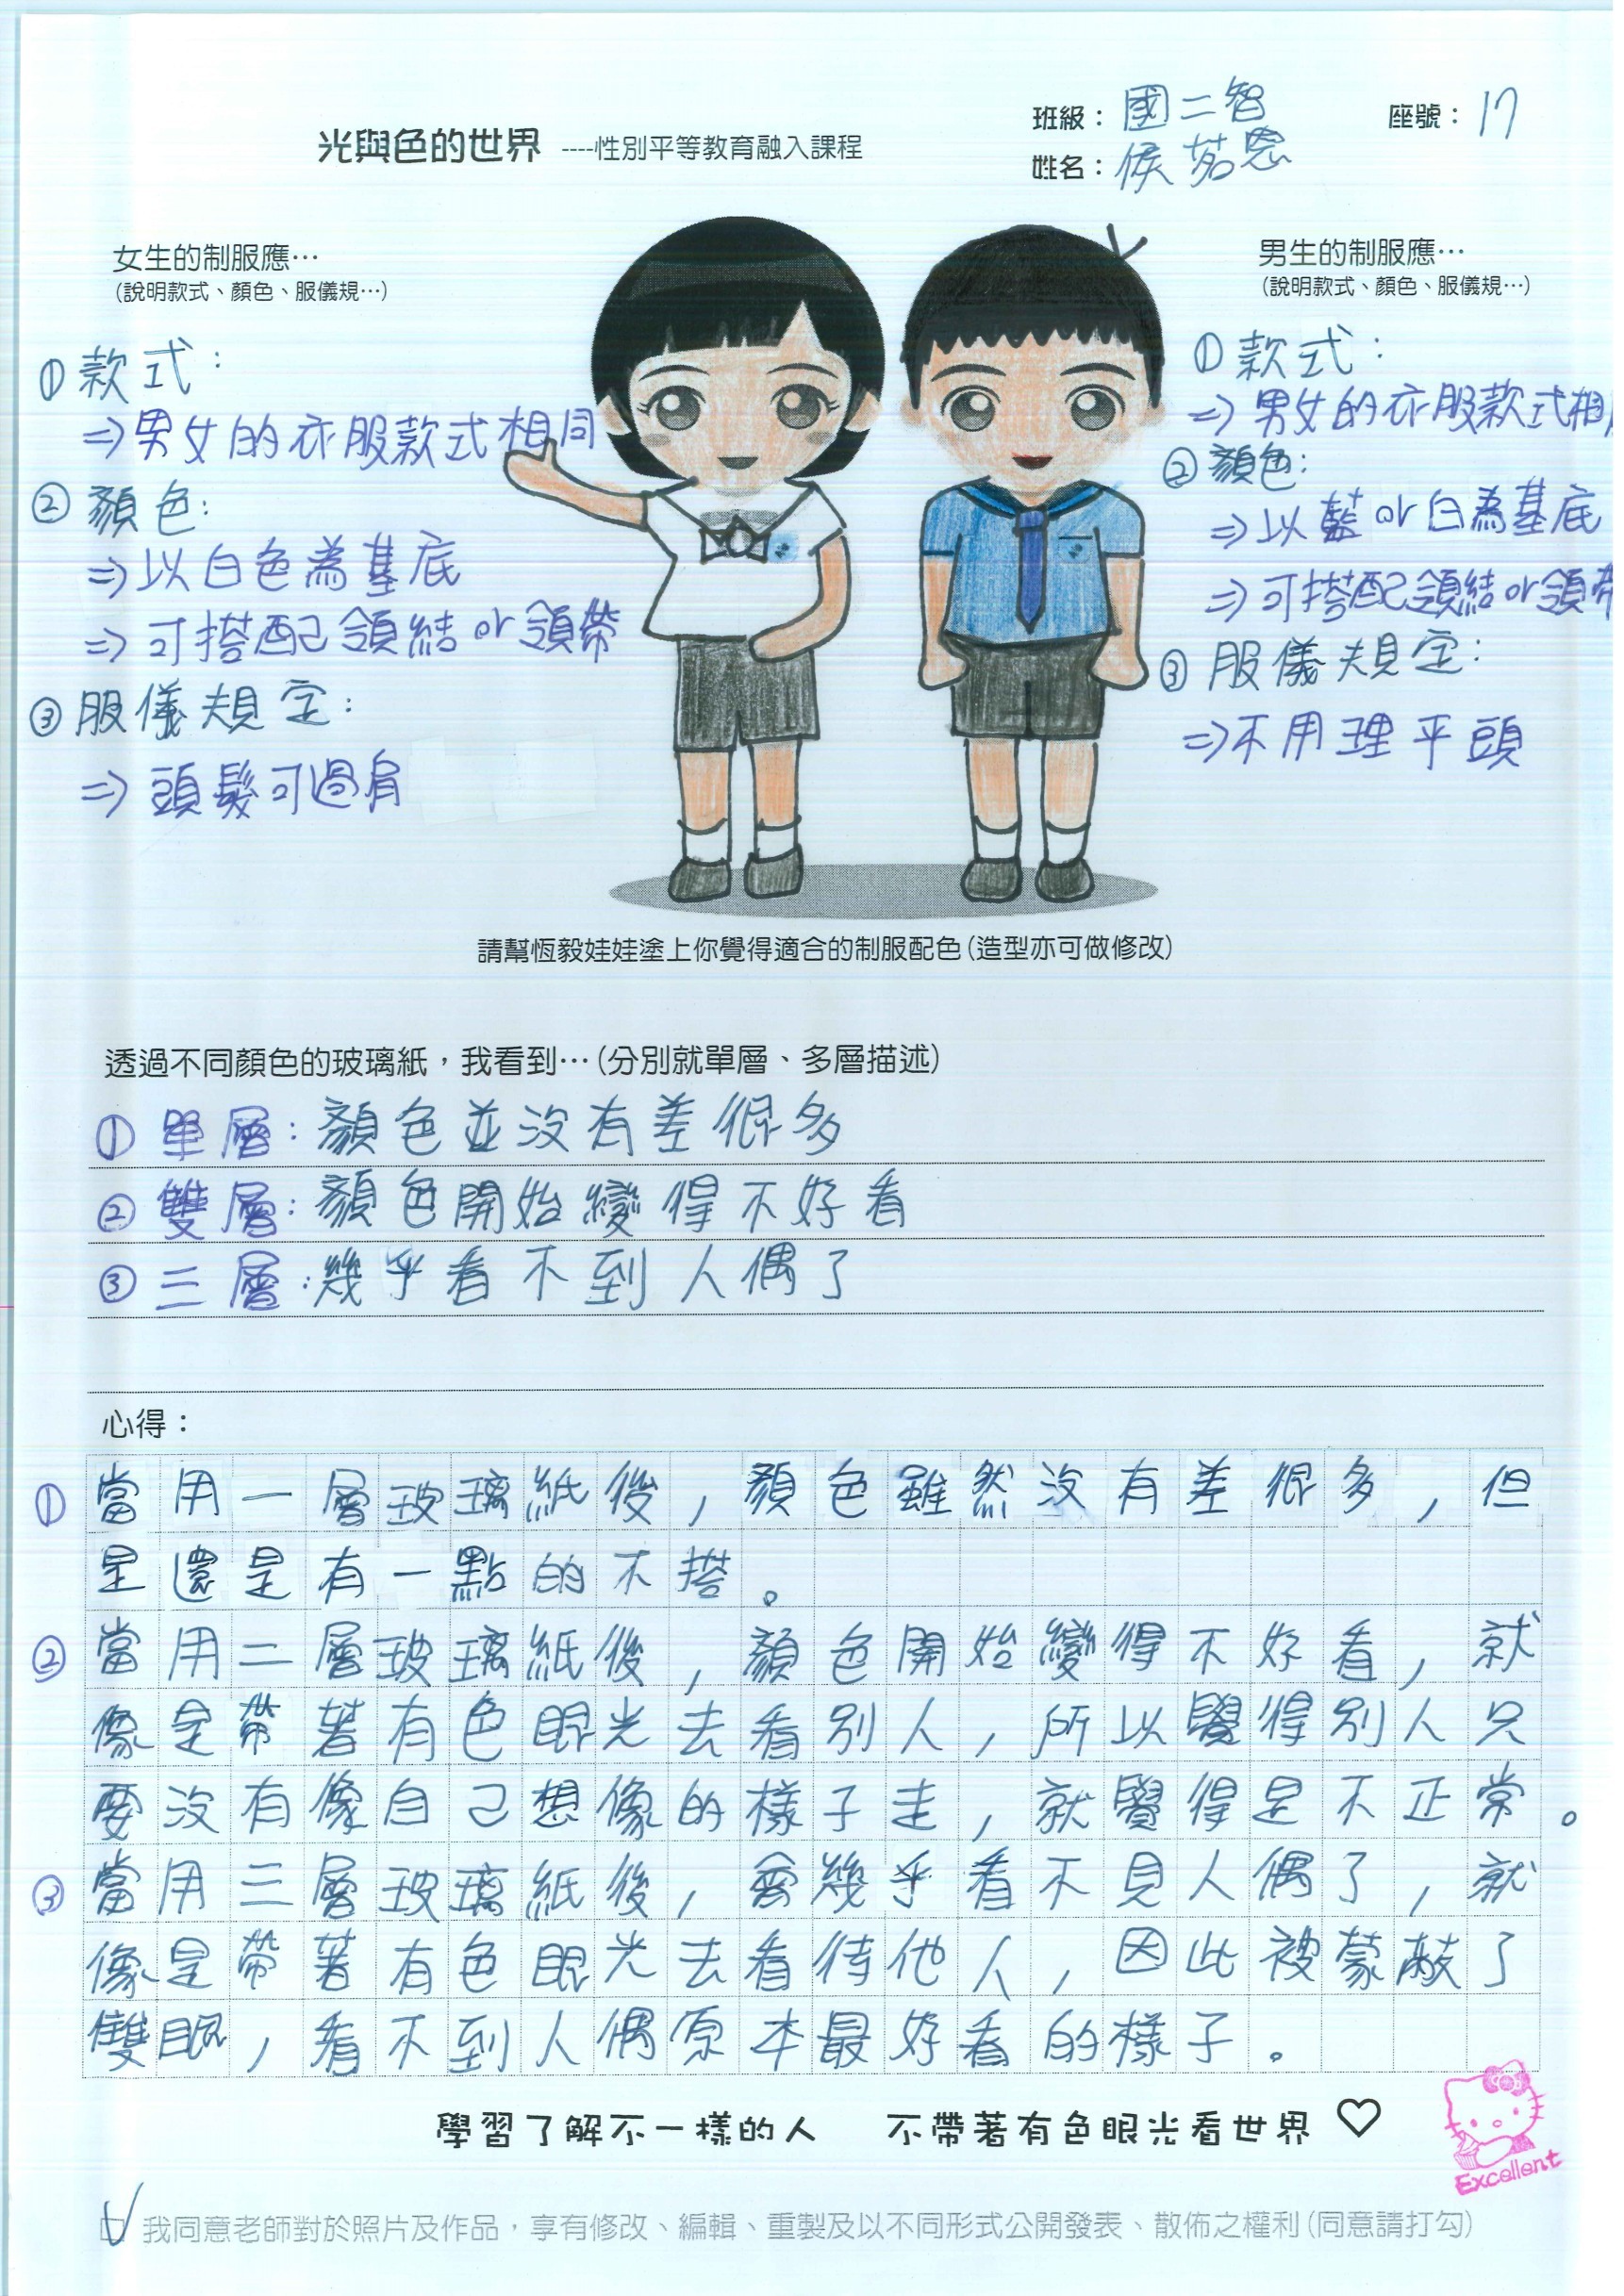 光與色的世界 ----性別平等教育融入課程
班級：國二智
座號：17
姓名：侯茗恩
女生的制服應…
(說明款式、顏色、服儀規…)
①款式：
⇒男女的衣服款式相同
②顏色：
⇒以白色為基底
⇒可搭配領結or領帶
③服儀規定：
⇒頭髮可過肩
男生的制服應…
(說明款式、顏色、服儀規…)
①款式：
⇒男女的衣服款式相
②顏色：
⇒以藍or白為基底
⇒可搭配領結or領帶
③服儀規定：
⇒不用理平頭
請幫恆毅娃娃塗上你覺得適合的制服配色(造型亦可做修改)
透過不同顏色的玻璃紙，我看到…(分別就單層、多層描述)
①單層：顏色並沒有差很多
②雙層：顏色開始變得不好看
③三層：幾乎看不到人偶了
心得：
①當用一層玻璃紙後，顏色雖然沒有差很多，但
是還是有一點的不搭。
②當用二層玻璃紙後，顏色開始變得不好看，就
像是帶著有色眼光去看別人，所以覺得別人只
要沒有像自己想像的樣子走，就覺得是不正常。
③當用三層玻璃紙後，會幾乎看不見人偶了，就
像是帶著有色眼光去看待他人，因此被蒙蔽了
雙眼，看不到人偶原本最好看的樣子。
學習了解不一樣的人 不帶著有色眼光看世界 ♡
Excellent
我同意老師對於照片及作品，享有修改、編輯、重製及以不同形式公開發表、散佈之權利(同意請打勾)